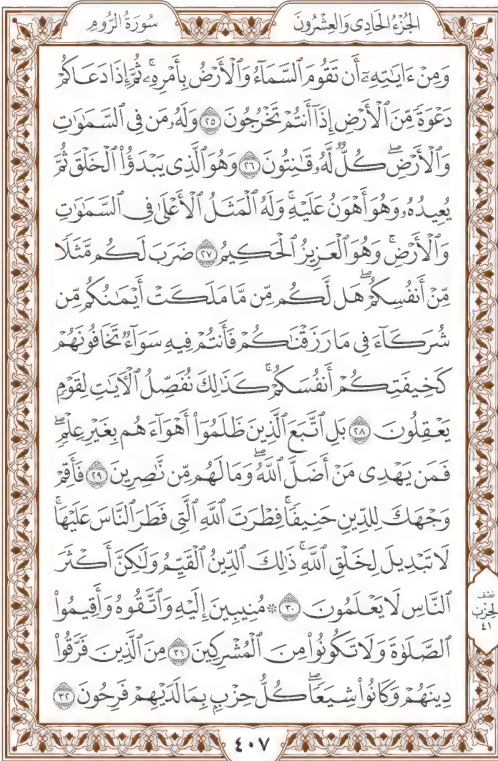 الجُزْءُ الحَادِي وَالعِشْرُونَ
سُورَةُ الرُّومِ
وَمِنْ ءَايَٰتِهِۦٓ أَن تَقُومَ ٱلسَّمَآءُ وَٱلْأَرْضُ بِأَمْرِهِۦۚ ثُمَّ إِذَا دَعَاكُمْ
دَعْوَةً مِّنَ ٱلْأَرْضِ إِذَآ أَنتُمْ تَخْرُجُونَ ٢٥ وَلَهُۥ مَن فِى ٱلسَّمَٰوَٰتِ
وَٱلْأَرْضِۖ كُلٌّ لَّهُۥ قَٰنِتُونَ ٢٦ وَهُوَ ٱلَّذِى يَبْدَؤُا۟ ٱلْخَلْقَ ثُمَّ
يُعِيدُهُۥ وَهُوَ أَهْوَنُ عَلَيْهِۚ وَلَهُ ٱلْمَثَلُ ٱلْأَعْلَىٰ فِى ٱلسَّمَٰوَٰتِ
وَٱلْأَرْضِۚ وَهُوَ ٱلْعَزِيزُ ٱلْحَكِيمُ ٢٧ ضَرَبَ لَكُم مَّثَلًا
مِّنْ أَنفُسِكُمْۖ هَل لَّكُم مِّن مَّا مَلَكَتْ أَيْمَٰنُكُم مِّن
شُرَكَآءَ فِى مَا رَزَقْنَٰكُمْ فَأَنتُمْ فِيهِ سَوَآءٌ تَخَافُونَهُمْ
كَخِيفَتِكُمْ أَنفُسَكُمْۚ كَذَٰلِكَ نُفَصِّلُ ٱلْءَايَٰتِ لِقَوْمٍ
يَعْقِلُونَ ٢٨ بَلِ ٱتَّبَعَ ٱلَّذِينَ ظَلَمُوٓا۟ أَهْوَآءَهُم بِغَيْرِ عِلْمٍۖ
فَمَن يَهْدِى مَنْ أَضَلَّ ٱللَّهُۖ وَمَا لَهُم مِّن نَّٰصِرِينَ ٢٩ فَأَقِمْ
وَجْهَكَ لِلدِّينِ حَنِيفًاۚ فِطْرَتَ ٱللَّهِ ٱلَّتِى فَطَرَ ٱلنَّاسَ عَلَيْهَاۚ
لَا تَبْدِيلَ لِخَلْقِ ٱللَّهِۚ ذَٰلِكَ ٱلدِّينُ ٱلْقَيِّمُ وَلَٰكِنَّ أَكْثَرَ
ٱلنَّاسِ لَا يَعْلَمُونَ ٣٠ ۞ مُنِيبِينَ إِلَيْهِ وَٱتَّقُوهُ وَأَقِيمُوا۟
ٱلصَّلَوٰةَ وَلَا تَكُونُوا۟ مِنَ ٱلْمُشْرِكِينَ ٣١ مِنَ ٱلَّذِينَ فَرَّقُوا۟
دِينَهُمْ وَكَانُوا۟ شِيَعًاۖ كُلُّ حِزْبٍۭ بِمَا لَدَيْهِمْ فَرِحُونَ ٣٢
نصف
الحزب
٤١
٤٠٧